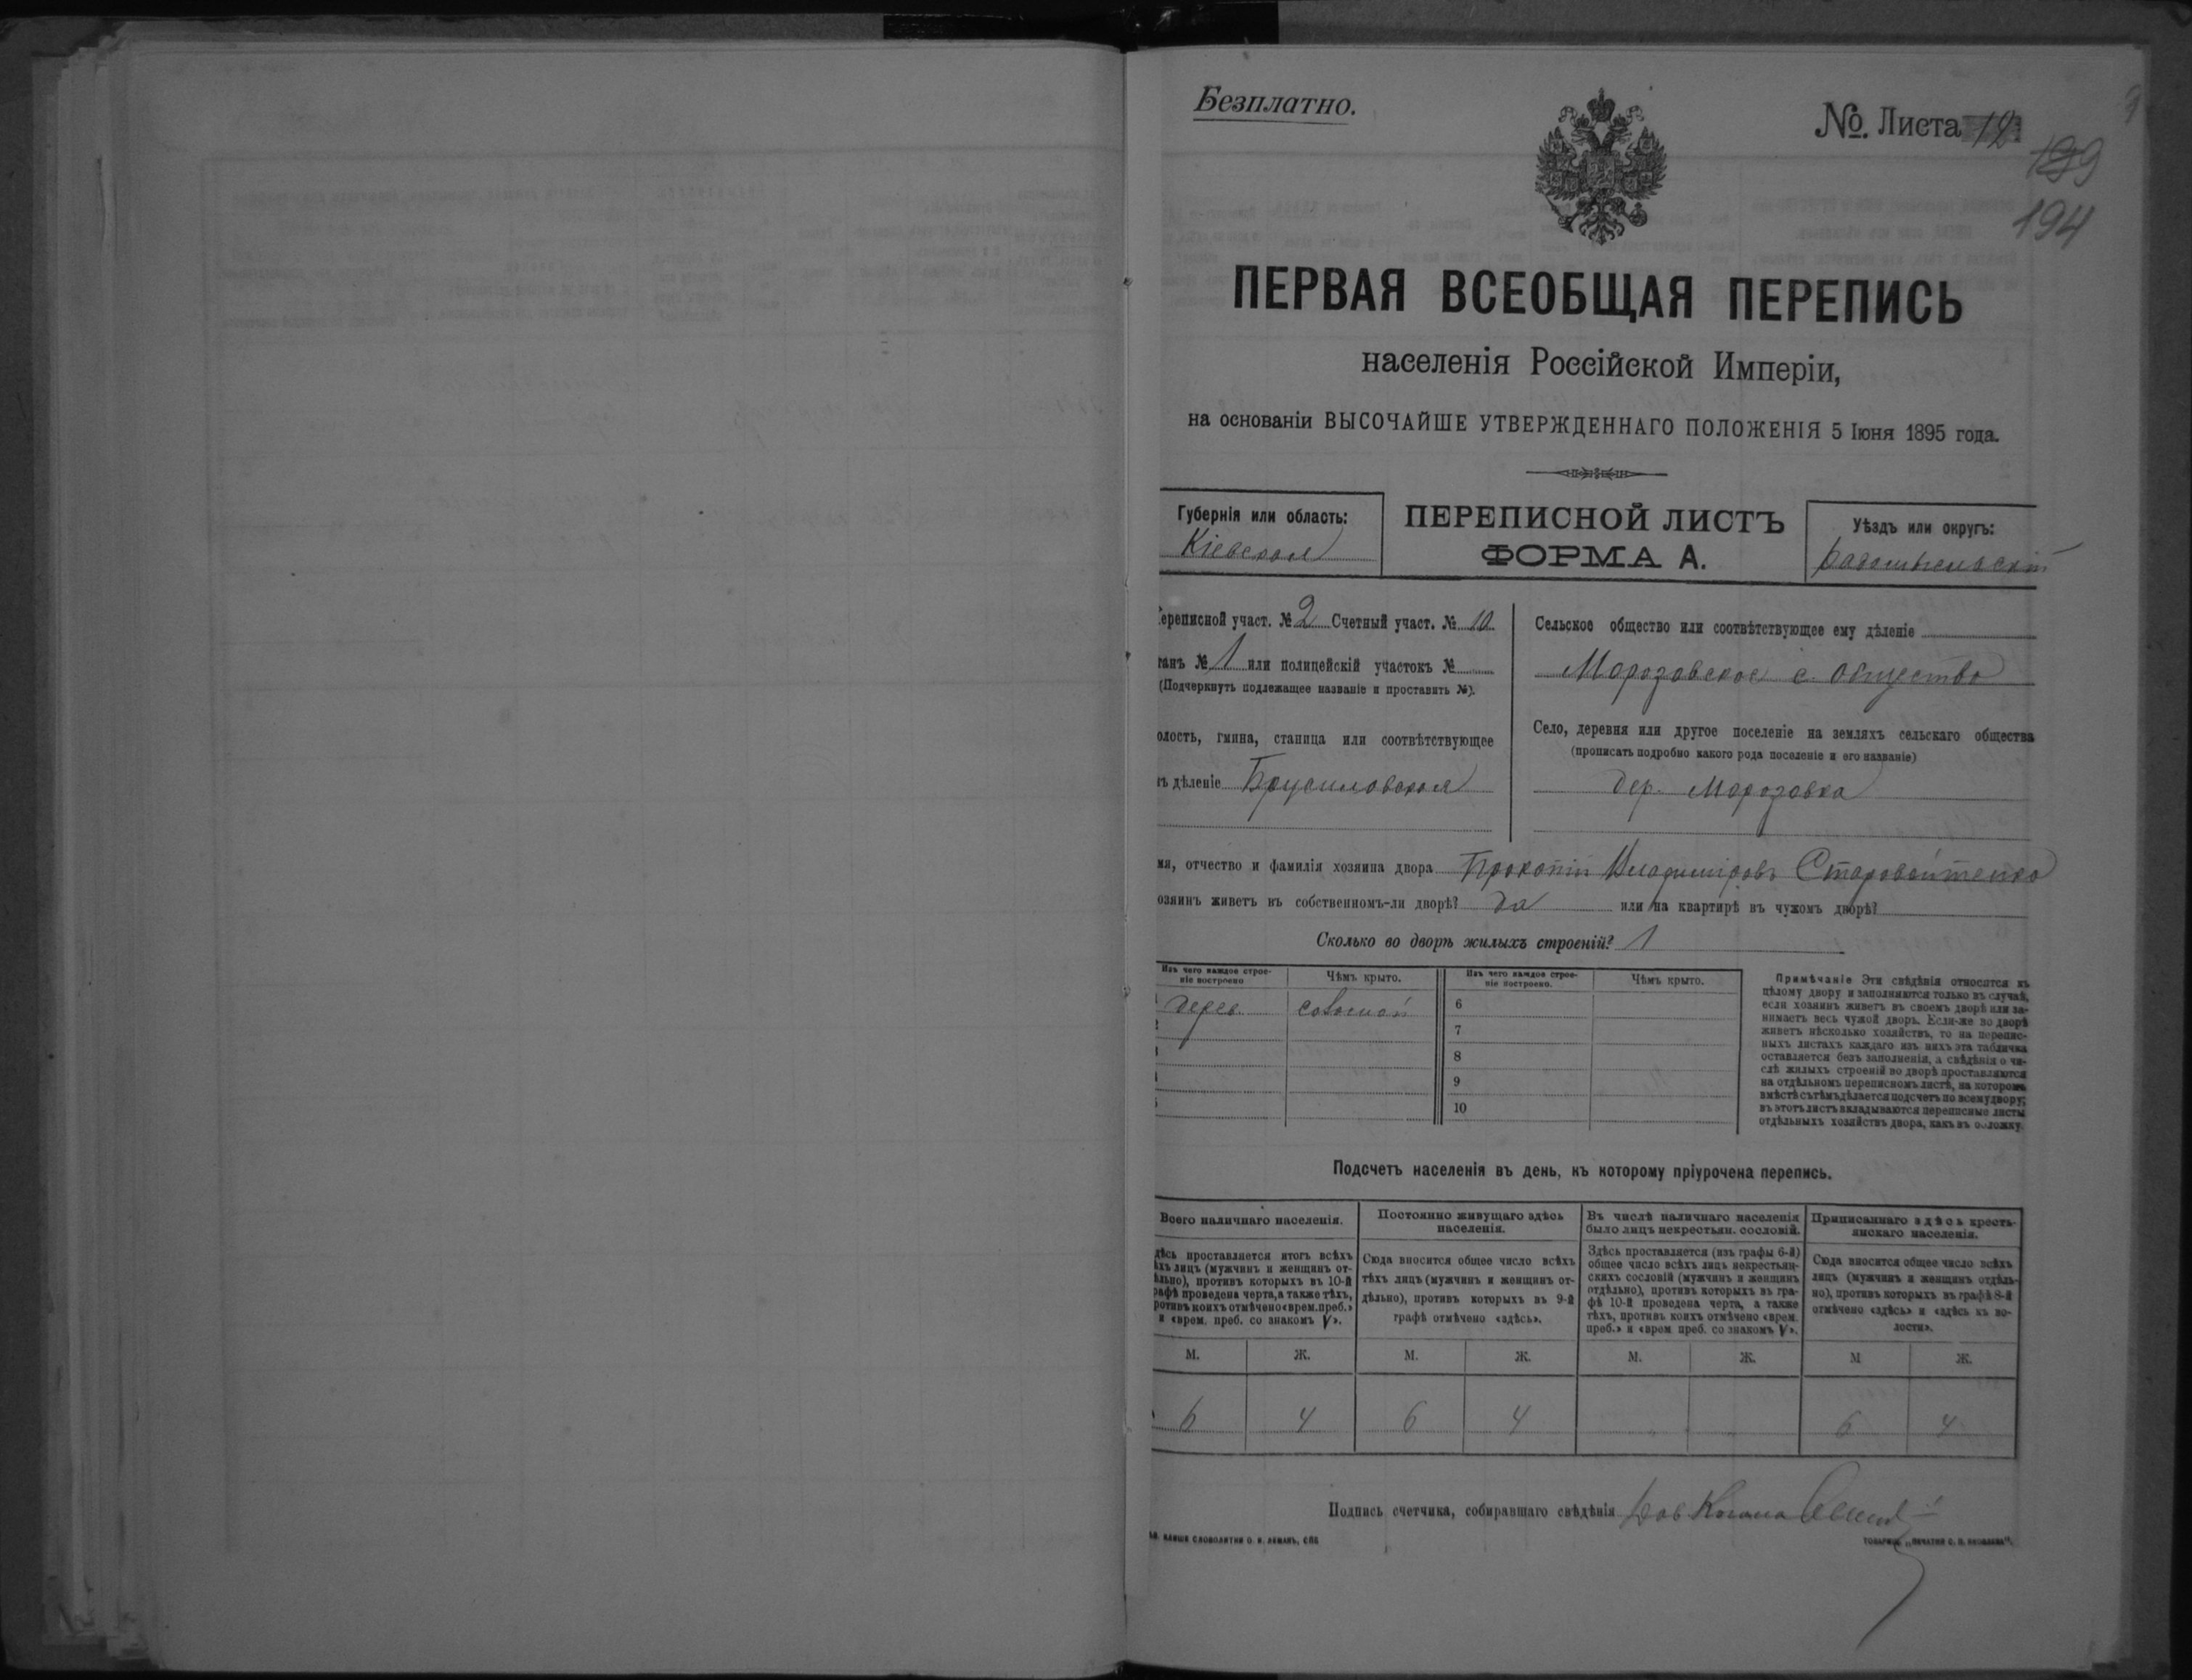 Безплатно.
№. Листа 12
199
194
ПЕРВАЯ ВСЕОБЩАЯ ПЕРЕПИСЬ
населенія Россійской Имперіи,
на основаніи ВЫСОЧАЙШЕ УТВЕРЖДЕННАГО ПОЛОЖЕНІЯ 5 Іюня 1895 года.
Губернія или область:
Кіевская
ПЕРЕПИСНОЙ ЛИСТЪ
ФОРМА А.
Уѣздъ или округъ:
Радомысльскій
ереписной участ. № 2 Счетный участ. № 10
танъ № 1 или полицейскій участокъ №
(Подчеркнуть подлежащее названіе и проставить №).
олость, гмина, станица или соотвѣтствующее
ъ дѣленіе Брусиловская
Сельское общество или соотвѣтствующее ему дѣленіе
Морозовское с. общество
Село, деревня или другое поселеніе на земляхъ сельскаго общества
(прописать подробно какого рода поселеніе и его названіе)
дер. Морозовка
мя, отчество и фамилія хозяина двора Прокопій Владиміровъ Старовойтенко
озяинъ живетъ въ собственномъ-ли дворѣ? да или на квартирѣ въ чужомъ дворѣ?
Сколько во дворѣ жилыхъ строеній? 1
Изъ чего каждое строе-
ніе построено
Чѣмъ крыто.
Изъ чего каждое строе-
ніе построено.
Чѣмъ крыто.
дерев. соломой
6
7
8
9
10
Примѣчаніе Эти свѣдѣнія относятся къ
цѣлому двору и заполняются только въ случаѣ,
если хозяинъ живетъ въ своемъ дворѣ или за-
нимаетъ весь чужой дворъ. Если-же во дворѣ
живетъ нѣсколько хозяйствъ, то на перепис-
ныхъ листахъ каждаго изъ нихъ эта табличка
оставляется безъ заполненія, а свѣдѣнія о чи-
слѣ жилыхъ строеній во дворѣ проставляются
на отдѣльномъ переписномъ листѣ, на которомъ
вмѣстѣ съ тѣмъ дѣлается подсчетъ по всему двору;
въ этотъ листъ вкладываются переписные листы
отдѣльныхъ хозяйствъ двора, какъ въ обложку.
Подсчетъ населенія въ день, къ которому пріурочена перепись.
Всего наличнаго населенія.
Постоянно живущаго здѣсь
населенія.
Въ числѣ наличнаго населенія
было лицъ некрестьян. сословій.
Приписаннаго здѣсь кресть-
янскаго населенія.
дѣсь проставляется итогъ всѣхъ
ѣхъ лицъ (мужчинъ и женщинъ от-
ѣльно), противъ которыхъ въ 10-й
рафѣ проведена черта, а также тѣхъ,
ротивъ коихъ отмѣчено «врем. преб.»
и «врем. преб. со знакомъ V».
Сюда вносится общее число всѣхъ
тѣхъ лицъ (мужчинъ и женщинъ от-
дѣльно), противъ которыхъ въ 9-й
графѣ отмѣчено «здѣсь».
Здѣсь проставляется (изъ графы 6-й)
общее число всѣхъ лицъ некрестьян-
скихъ сословій (мужчинъ и женщинъ
отдѣльно), противъ которыхъ въ гра-
фѣ 10-й проведена черта, а также
тѣхъ, противъ коихъ отмѣчено «врем.
преб.» и «врем преб. со знакомъ V».
Сюда вносится общее число всѣхъ
лицъ (мужчинъ и женщинъ отдѣль-
но), противъ которыхъ въ графѣ 8-й
отмѣчено «здѣсь» и «здѣсь въ во-
лости».
М. Ж. М. Ж. М. Ж. М Ж.
6 4 6 4 6 4
Подпись счетчика, собиравшаго свѣдѣнія
СЛОВОЛИТНИ О. И. ЛЕМАНЪ, СПБ